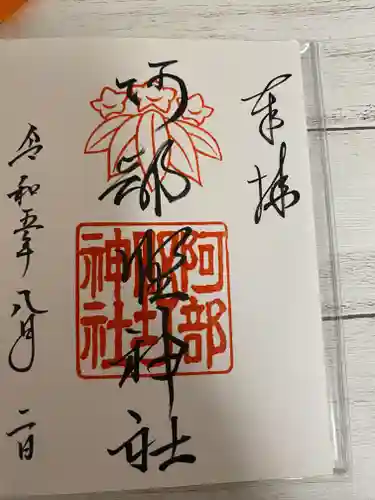 奉拝
阿部野神社
令和五年八月二日
阿部野神社